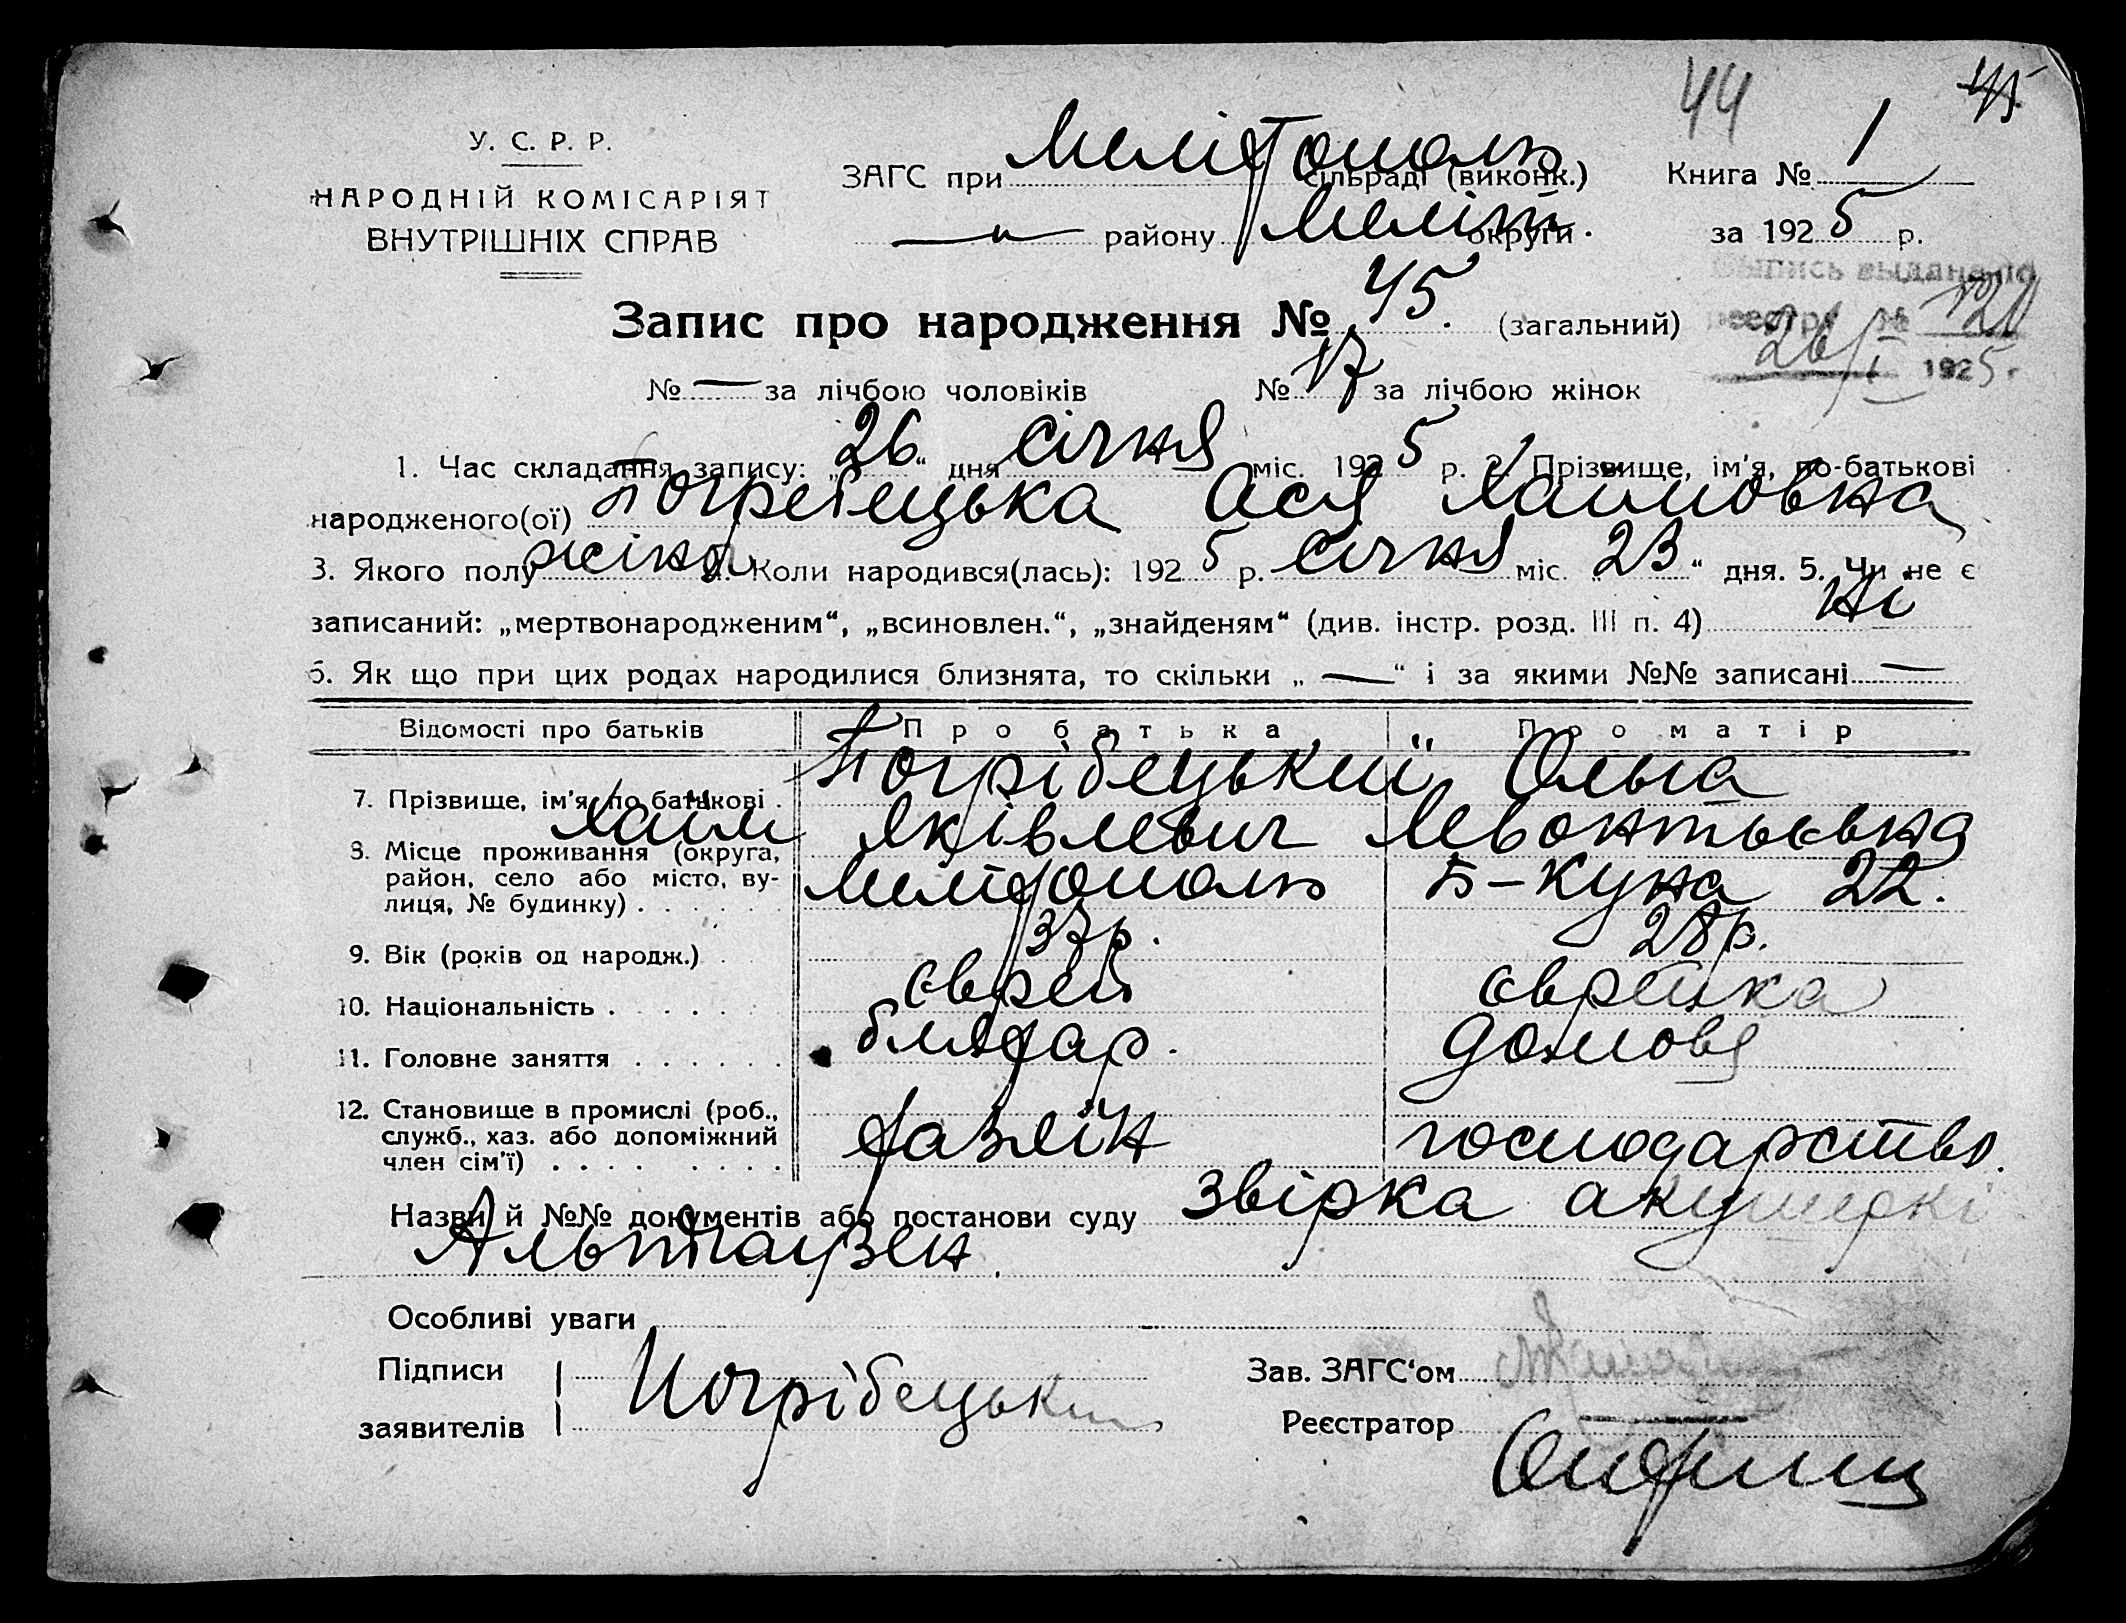 44 45
У. С. Р. Р.
НАРОДНІЙ КОМІСАРІЯТ
ВНУТРІШНІХ СПРАВ
ЗАГС при Мелітополь сільраді (виконк.) Книга № 1
— району Меліт. округи за 1925 р.
Выпись выдана по
реестру № 120
26/I 1925 г.
Запис про народження № 45. (загальний)
№ — за лічбою чоловіків № 17 за лічбою жінок
1. Час складання запису: „26“ дня січня міс. 1925 р. 2. Прізвище, ім'я, по-батькові
народженого(ої) Погребецька Ася Хаимовна
3. Якого полу жіноч. Коли народився(лась): 1925 р. січня міс. „23“ дня. 5. Чи не є
записаний: „мертвонародженим“, „всиновлен.“, „знайденям“ (див. інстр. розд. III п. 4) Ні
6. Як що при цих родах народилися близнята, то скільки „—“ і за якими №№ записані —
Відомості про батьків Про батька Про матір
7. Прізвище, ім'я по батькові . Погрібецький Хаим Яківлевич Ольга Левонтьєвна
8. Місце проживання (округа, район, село або місто, вулиця, № будинку) . . . . . . Мелітополь Б-Куна 22.
9. Вік (років од народж.) . 37 р. 28 р.
10. Національність . . . . . . єврей єврейка
11. Головне заняття . . . . . . бляхар. домовя
12. Становище в промислі (роб., служб., хаз. або допоміжний член сім'ї) . . . . . . . . хазяїн господарство.
Назви й №№ документів або постанови суду Звірка акушеркі
Альтгаузен.
Особливі уваги
Підписи заявителів Погрібецький
Зав. ЗАГС'ом
Реєстратор